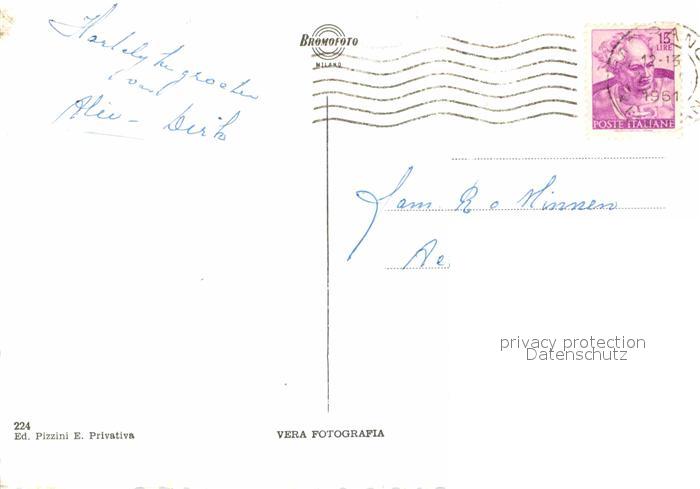 Hartelijke groeten
van
Alie - Dirk
BROMOFOTO
MILANO
15
LIRE
12-13
1961
POSTE ITALIANE
Fam. R v Hinnen
Ae
privacy protection
Datenschutz
224
Ed. Pizzini E. Privativa
VERA FOTOGRAFIA